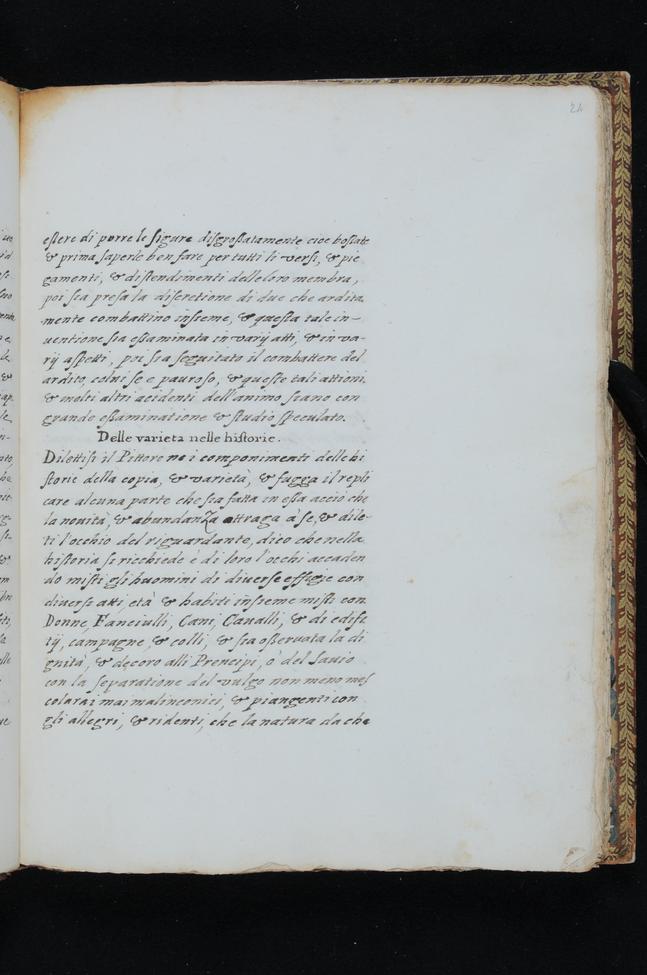 24
essere di porre le figure disgrossatamente cioe bossate
& prima saperle ben fare per tutti li versi, & pie
gamenti, & distendimenti delle loro membra,
poi sia presa la discretione di due che ardita
mente combattino insieme, & questa tale in-
ventione sia essaminata in varij atti, & in va-
rij aspetti, poi sia seguitato il combattere del
ardito, col vi se e pauroso, & queste tali attioni,
& molti altri acidenti dell'animo siano con
grande essaminatione & studio speculato.
Delle varieta nelle historie.
Dilettisi il Pittore ne i componimenti delle hi
storie della copia, & varietà, & fugga il repli
care alcuna parte che sia fatta in essa acciò che
la novità, & abundanza attraga à se, & dile-
ti l'occhio del riguardante, dico che nella
historia si ricchiede è di loro l'occhi accaden
do misti gli huomini di diverse effigie con
diversi atti, età & habiti insieme misti con
Donne, Fanciulli, Cani, Cavalli, & di edifi
tij, campagne, & colli, & sia osservata la di
gnità, & decoro alli Prencipi, ò del savio
con la separatione del vulgo non meno mes
colarai mai malinconici, & piangenti con
gli allegri, & ridenti, che la natura da che